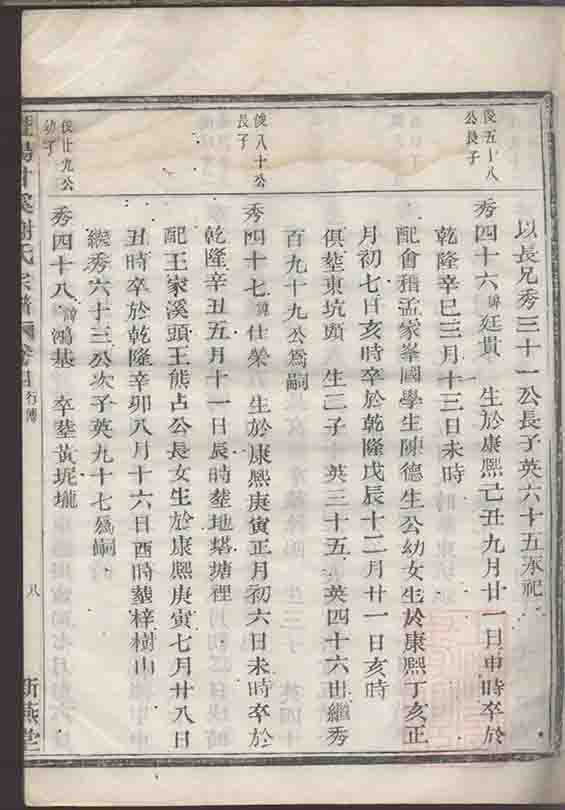 以長兄秀三十一公長子英六十五承祀
俊五十八
公長子
秀四十六諱廷貴 生於康熙己丑九月廿一日申時卒於
乾隆辛巳三月十三日未時
配會稽孟家峯國學生陳德生公幼女生於康熙丁亥正
月初七日亥時卒於乾隆戊辰十二月廿一日亥時
俱塟東坑頭 生二子 英三十五 英四十六出繼秀
百九十九公爲嗣
俊八十公
長子
秀四十七諱仕榮 生於康熙庚寅正月初六日未時卒於
乾隆辛丑五月十一日辰時塟地塔塘裡
配王家溪頭王熊占公長女生於康熙庚寅七月廿八日
丑時卒於乾隆辛卯八月十六日酉時塟梓樹山
繼秀六十三公次子英九十七爲嗣
俊廿九公
幼子
秀四十八諱鴻基 卒塟黃坭壠
謝氏宗譜
行傳
八